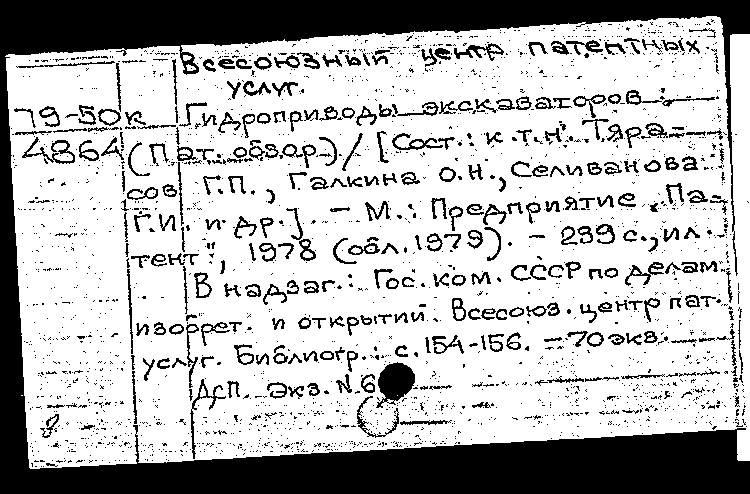 Всесоюзный центр патентных
услуг.
79-50к Гидроприводы экскаваторов :
4864 (Пат. обзор) / [Сост.: к.т.н. Тяра-
сов Г.П., Галкина О.Н., Селиванова
Г.И. и др.]. - М.: Предприятие „Па-
тент", 1978 (обл. 1979). - 239 с., ил.
В надзаг.: Гос. ком. СССР по делам
изобрет. и открытий. Всесоюз. центр пат.
услуг. Библиогр.: с. 154-156. - 70 экз.
Дсп. Экз. N 6